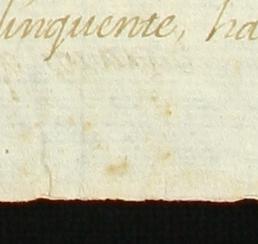 linquente, ha